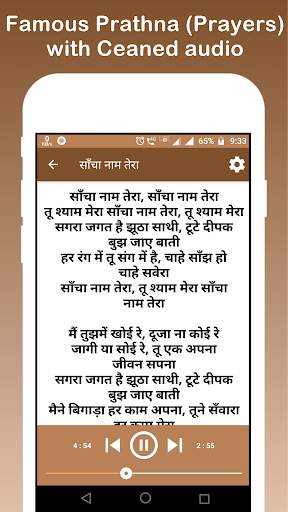 Famous Prathna (Prayers)
with Ceaned audio
65% 9:33
साँचा नाम तेरा
साँचा नाम तेरा, साँचा नाम तेरा
तू श्याम मेरा साँचा नाम तेरा, तू श्याम मेरा
सगरा जगत है झूठा साथी, टूटे दीपक
बुझ जाए बाती
हर रंग में तू संग में है, चाहे साँझ हो
चाहे सवेरा
साँचा नाम तेरा, तू श्याम मेरा साँचा
नाम तेरा
मैं तुझमें खोई रे, दूजा ना कोई रे
जागी या सोई रे, तू एक अपना
जीवन सपना
सगरा जगत है झूठा साथी, टूटे दीपक
बुझ जाए बाती
मैने बिगाड़ा हर काम अपना, तूने सँवारा
हर काम मेरा
4 : 54 2 : 55